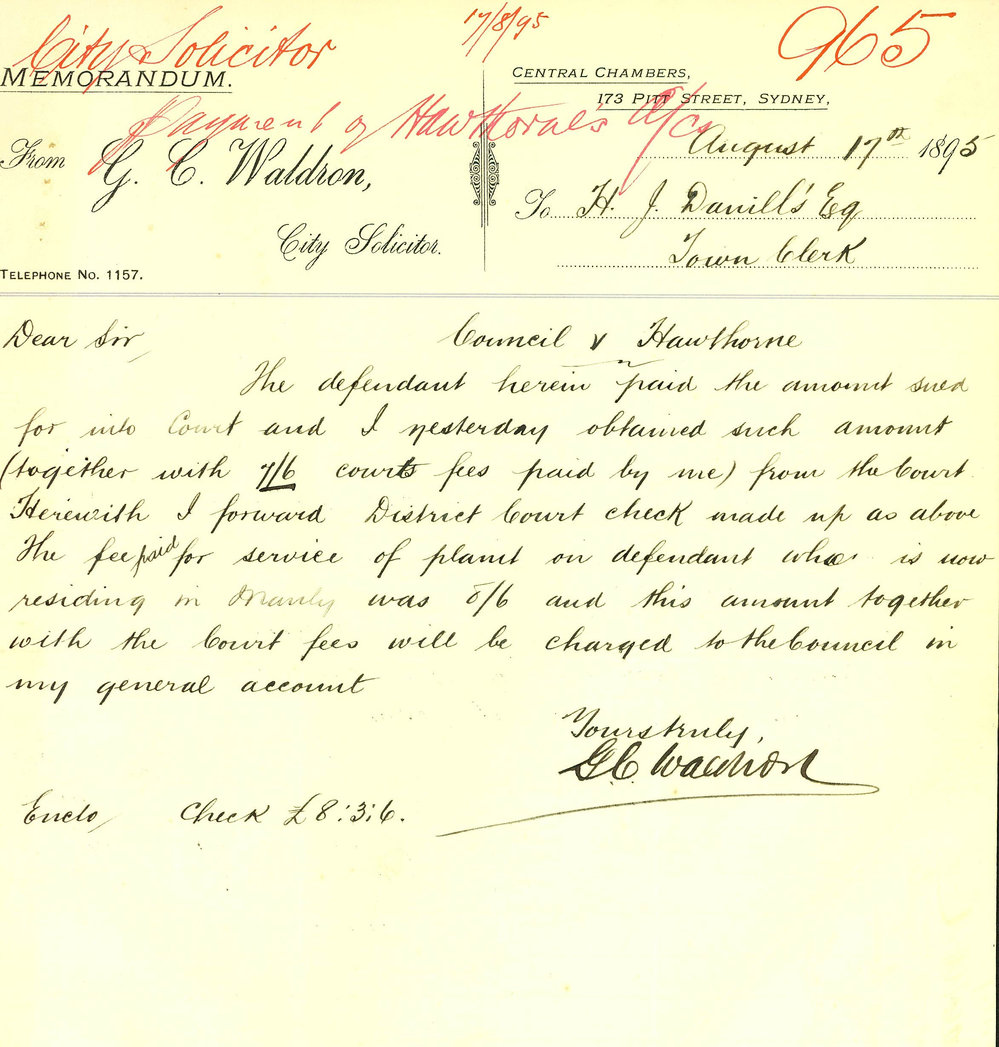 City Solicitor
17/8/95
965
MEMORANDUM.
Payment of Hawthorne's A/cs
CENTRAL CHAMBERS,
173 PITT STREET, SYDNEY,
August 17th 1895
From G. C. Waldron,
City Solicitor.
TELEPHONE No. 1157.
To H. J. Daniel's Esq
Town Clerk
Dear Sir
Council v Hawthorne
The defendant herein paid the amount sued
for into Court and I yesterday obtained such amount
(together with 7/6 courts fees paid by me) from the Court.
Herewith I forward District Court check made up as above
The fee paid for service of plaint on defendant who is now
residing in Manly was 5/6 and this amount together
with the Court fees will be charged to the Council in
my general account
Yours truly,
G. C. Waldron
Enclo check £8:3:6.